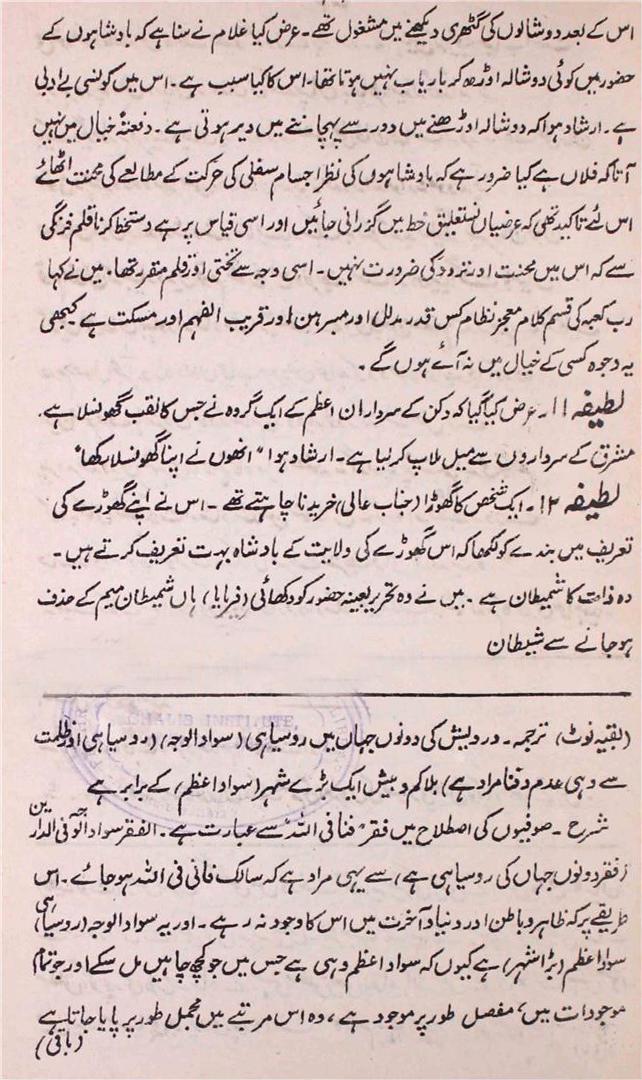 اس کے بعد دوشالوں کی گٹھری دیکھنے میں مشغول تھے۔ عرض کیا غلام نے سنا ہے کہ بادشاہوں کے
حضور میں کوئی دوشالہ اوڑھ کر باریاب نہیں ہوتا تھا۔ اس کا کیا سبب ہے۔ اس میں کونسی بے ادبی
ہے۔ ارشاد ہوا کہ دوشالہ اوڑھنے میں دور سے پہچاننے میں دیر ہوتی ہے۔ دفعتہً خیال میں نہیں
آتا کہ فلاں ہے کیا ضرور ہے کہ بادشاہوں کی نظر اجسام سفلی کی حرکت کے مطالعے کی محنت اٹھائے
اس لئے تاکید تھی کہ عرضیاں نستعلیق خط میں گزرانی جائیں اور اسی قیاس پر ہے دستخط کرنا قلم فرنگی
سے کہ اس میں محنت اور تردد کی ضرورت نہیں۔ اسی وجہ سے تختی اور قلم مقرر تھا۔ میں نے کہا
رب کعبہ کی قسم کلام معجز نظام کس قدر مدلل اور مبرہن اور قریب الفہم اور مسکت ہے کبھی
یہ وجوہ کسی کے خیال میں نہ آئے ہوں گے۔
لطیفہ ۱۱۔ عرض کیا گیا کہ دکن کے سرداران اعظم کے ایک گروہ نے جس کا لقب گھونسلا ہے۔
مشرق کے سرداروں سے میل ملاپ کر لیا ہے۔ ارشاد ہوا "انھوں نے اپنا گھونسلا رکھا"
لطیفہ ۱۲۔ ایک شخص کا گھوڑا (جناب عالی) خریدنا چاہتے تھے۔ اس نے اپنے گھوڑے کی
تعریف میں بندے کو لکھا کہ اس گھوڑے کی ولایت کے بادشاہ بہت تعریف کرتے ہیں۔
وہ ذات کا شمیطان ہے۔ میں نے وہ تحریر بعینہ حضور کو دکھائی (فرمایا) ہاں شمیطان میم کے حذف
ہو جانے سے شیطان
(بقیہ نوٹ) ترجمہ۔ درویش کی دونوں جہاں میں روسیاہی (سواد الوجہ) (روسیاہی اور ظلمت
سے وہی عدم و فنا مراد ہے) بلا کم و بیش ایک بڑے شہر (سواد اعظم) کے برابر ہے
شرح۔ صوفیوں کی اصطلاح میں فقر "فنا فی اللہ" سے عبارت ہے۔ الفقر سواد الوجہ فی الدارین
(فقر دونوں جہاں کی روسیاہی ہے) سے یہی مراد ہے کہ سالک فانی فی اللہ ہو جائے۔ اس
طریقے پر کہ ظاہر و باطن اور دنیا و آخرت میں اس کا وجود نہ رہے۔ اور یہ سواد الوجہ (روسیاہی)
سواد اعظم (بڑا شہر) ہے کیوں کہ سواد اعظم وہی ہے جس میں جو کچھ چاہیں مل سکے اور جو تمام
موجودات میں، مفصل طور پر موجود ہے، وہ اس مرتبے میں مجمل طور پر پایا جاتا ہے
(باقی)
GHALIB INSTITUTE,